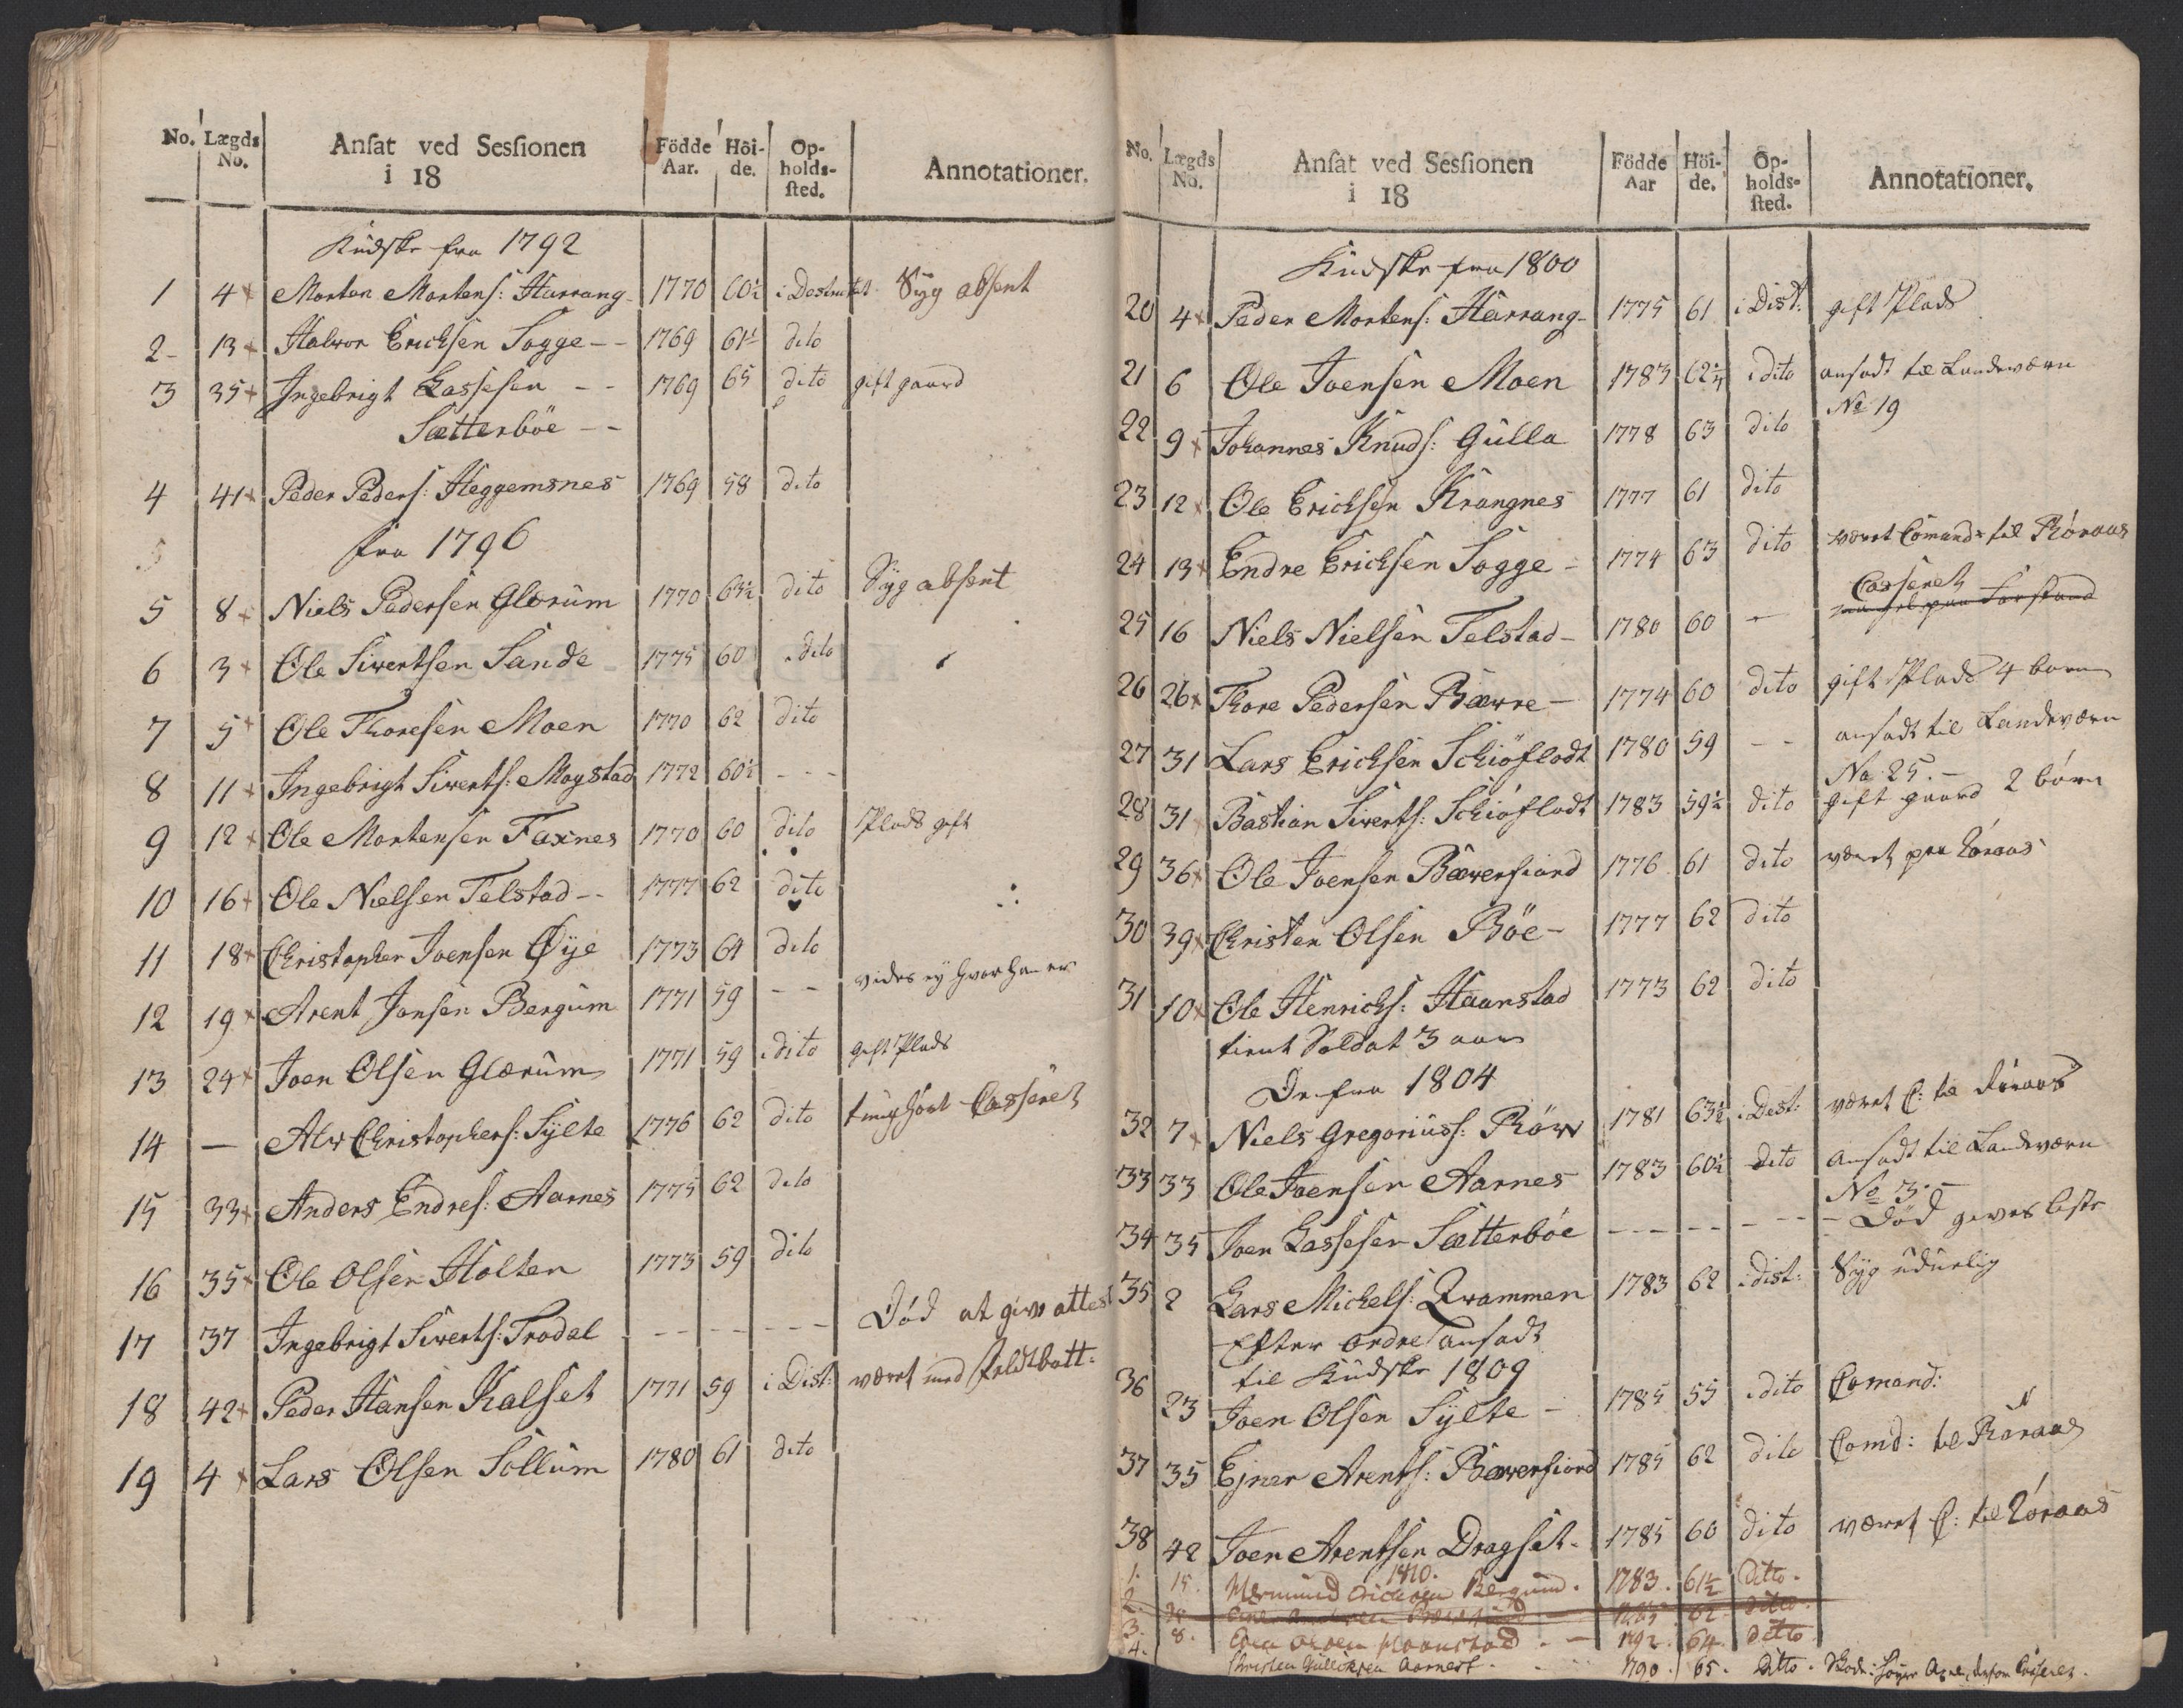 No. Lægds No. Ansat ved Sessionen i 18 Födde Aar. Höi-de. Op-holds-sted. Annotationer.
Kudske fra 1792
1 4 Morten Mortens: Harrang 1770 60½ i Destrictet Syg absent
2 13 Halvor Erichsen Sogge 1769 61½ dito
3 35 Ingebrigt Lassesen 1769 65 dito gift gaard
Sætterböe
4 41 Peder Peders: Heggemsnes 1769 58 dito
fra 1796
5 8 Niels Pedersen Glærum 1770 63½ dito Syg absent
6 3 Ole Sivertsen Sande 1775 60 dito
7 5 Ole Thoresen Moen 1770 62 dito
8 11 Ingebrigt Siverts: Mogstad 1772 60½ - - -
9 12 Ole Mortensen Faxnes 1770 60 dito Plads gift
10 16 Ole Nielsen Telstad 1777 62 dito
11 18 Christopher Joensen Øye 1773 64 dito
12 19 Arent Jonsen Bergum 1771 59 - - vides ey hvor han er
13 24 Joen Olsen Glærum 1771 59 i dito gift Plads
14 — Alv Christophers: Sylte 1776 62 dito tunghört Casseret
15 33 Anders Endres: Aarnes 1775 62 dito
16 35 Ole Olsen Holten 1773 59 dito
17 37 Ingebrigt Siverts: Trodal - - - Död at give attest
18 42 Peder Hansen Kalset 1771 59 i Dist: været med feldtbatt:
19 4 Lars Olsen Sollum 1780 61 dito
No. Lægds No. Ansat ved Sessionen i 18 Födde Aar Höi-de. Op-holds-sted. Annotationer.
Kudske fra 1800
20 4 Peder Mortens: Harrang 1775 61 i Dist: gift Plads
21 6 Ole Joensen Moen 1783 62¼ i dito ansadt til Landeværn
No 19
22 9 Johannes Knuds: Gulla 1778 63 dito
23 12 Ole Erichsen Krangnes 1777 61 dito
24 13 Endre Erichsen Sogge 1774 63 dito været Comand: til Röraas
Casseret
25 16 Niels Nielsen Telstad 1780 60 - mangel paa Forstand
26 26 Thore Pedersen Bæwre 1774 60 dito gift Plads 4 born
27 31 Lars Erichsen Schiöflodt 1780 59 - - ansadt til Landeværn
No 25.
28 31 Bastian Siverts: Schiöflodt 1783 59½ dito gift gaard 2 börn
29 36 Ole Joensen Bæwerfiord 1776 61 dito været paa Röraas
30 39 Christen Olsen Böe 1777 62 dito
31 10 Ole Henrichs: Haanstad 1773 62 dito
tient Soldat 3 aar
De fra 1804
32 7 Niels Gregoriuss: Röv 1781 63½ i Dest: været C: til Röraas
33 33 Ole Joensen Aarnes 1783 60½ dito ansadt til Landeværn
No 3.
34 35 Joen Lassesen Sætterböe - - - - Död
35 2 Lars Michels: Qvammen 1783 62 i dist: Syg uduelig
Efter ordre ansadt
til Kudske 1809
36 23 Joen Olsen Sylte 1785 55 i dito Comand:
37 35 Ejner Arents: Bæwerfiord 1785 62 dito Comd: til Röraas
38 42 Joen Arentsen Dragset 1785 60 dito været C: til Röraas
1810.
1. 15. Erichsen Bergum. 1783. 61½ Ditto.
2. 62 Ditto.
3. 8. Olsen Haanstad 1792. 64. Ditto
4. Christen Gulliksen Aarnes 1790. 65. Ditto.